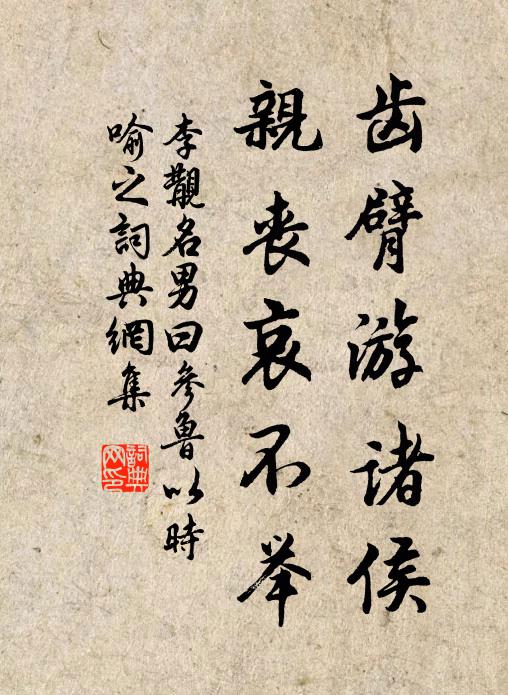 齿臂游诸侯
親丧哀不举
李覯名男曰参魯以時
喻之詞典網集
詞典
网印